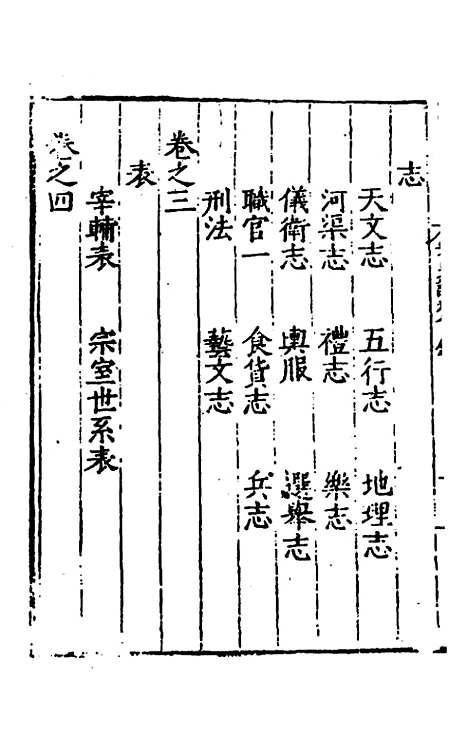 志
天文志　五行志　地理志
河渠志　禮志　樂志
儀衛志　輿服　選舉志
職官一　食貨志　兵志
刑法　藝文志
卷之三
表
宰輔表　宗室世系表
卷之四